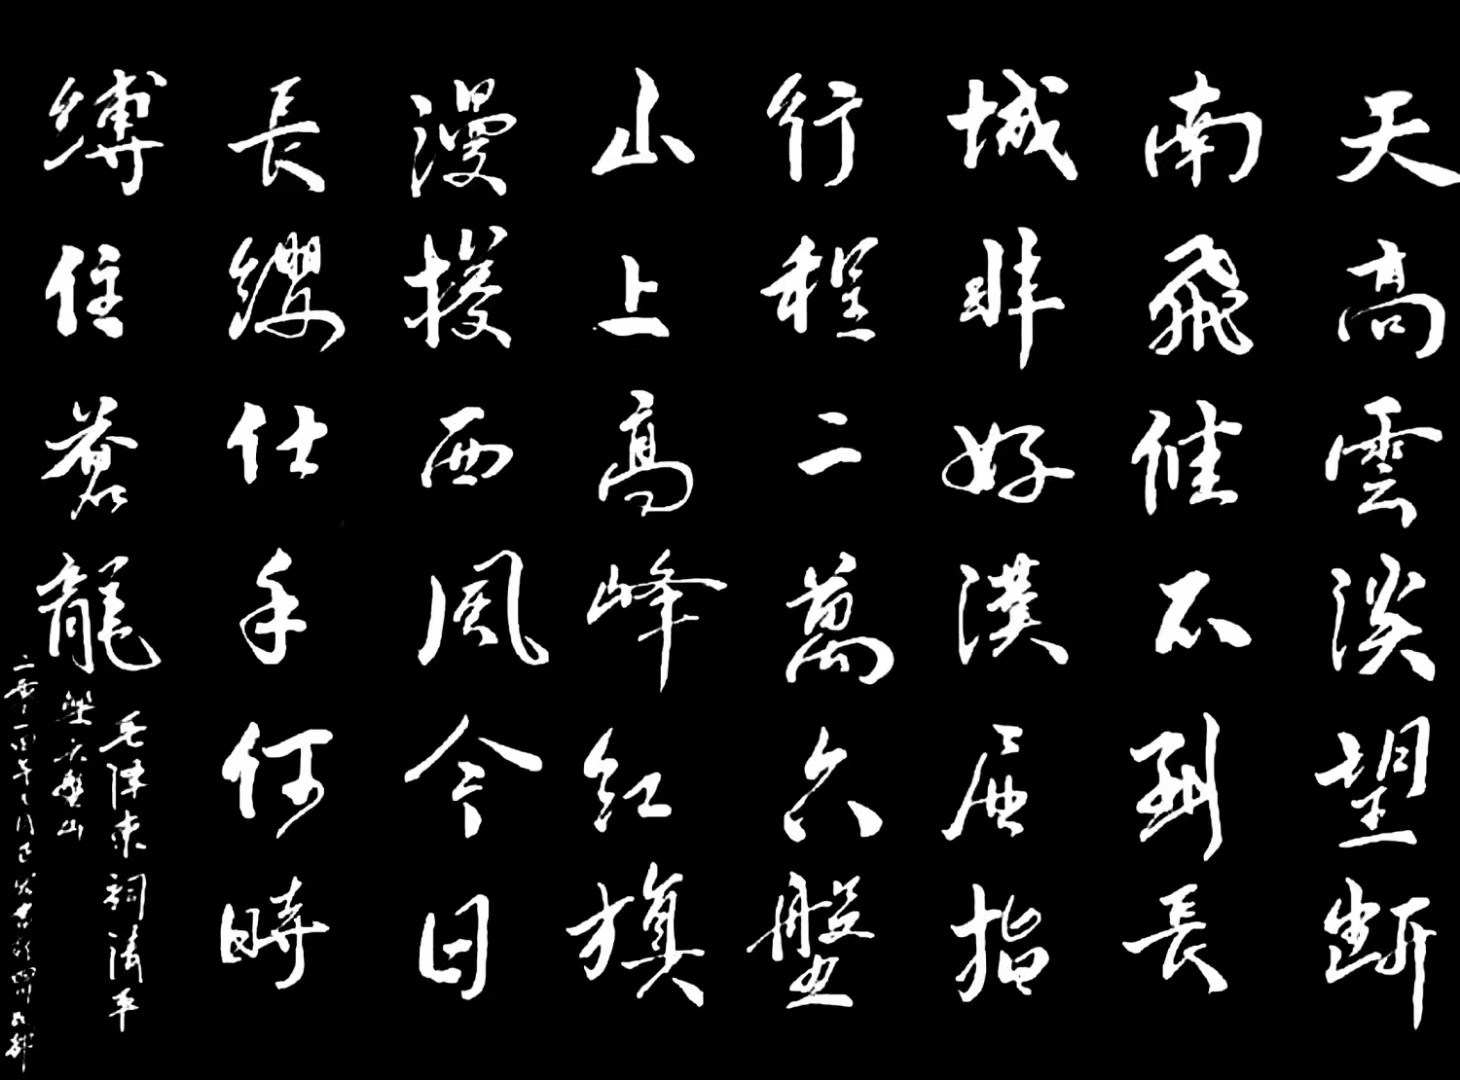 天高雲淡望斷
南飛雁不到長
城非好漢屈指
行程二萬六盤
山上高峰紅旗
漫捲西風今日
長纓在手何時
縛住蒼龍
毛澤東詞清平
樂六盤山
二零一四年月書於四川成都